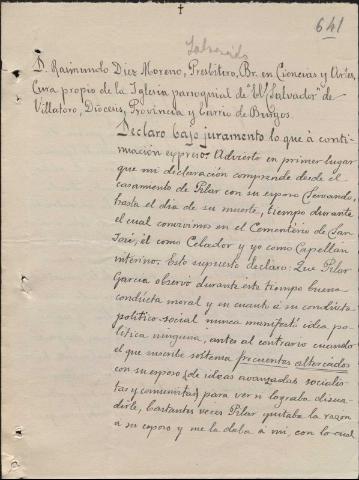 †
641
Laborioso
D. Raimundo Diez Moreno, Presbítero, Br. en Ciencias y Artes,
Cura propio de la Iglesia parroquial de "El Salvador" de
Villatoro, Diócesis, Provincia y Barrio de Burgos.
Declaro bajo juramento lo que á conti-
nuación expreso. Advierto en primer lugar
que mi declaración comprende desde el
casamiento de Pilar con su esposo Servando,
hasta el día de su muerte, tiempo durante
el cual convivimos en el Cementerio de San
José, él como Celador y yo como Capellán
interino. Esto supuesto declaro: Que Pilar
García observó durante este tiempo buena
conducta moral y en cuanto á su conducta
político-social nunca manifestó idea po-
lítica ninguna, antes al contrario cuando
el que suscribe sostenía frecuentes altercados
con su esposo (de ideas avanzadas socialis-
tas y comunistas) para ver si lograba disua-
dirle, bastantes veces Pilar quitaba la razón
a su esposo y me la daba á mí, con lo cual